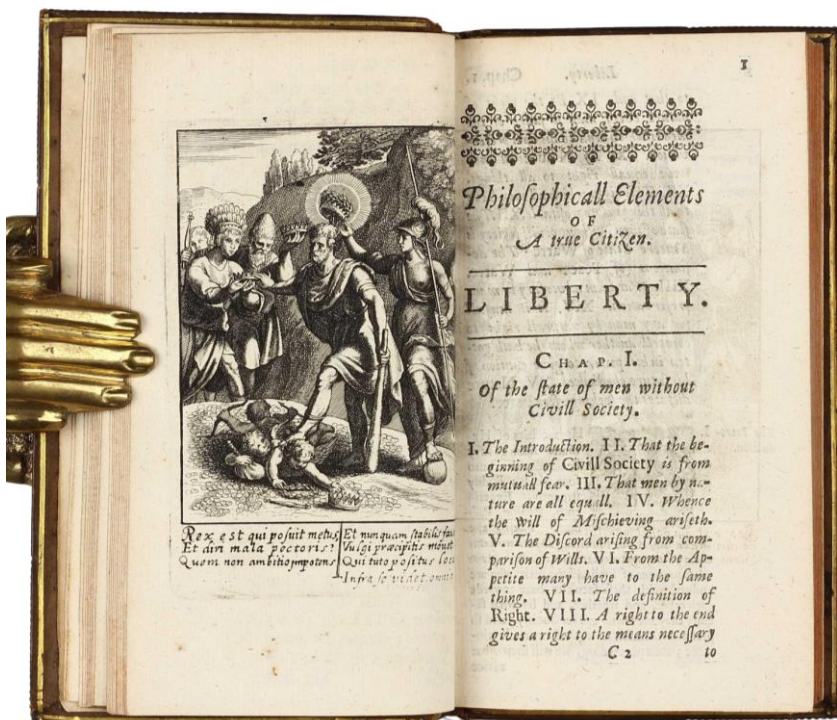 Rex est qui posuit metus,
Et diri mala pectoris:
Quem non ambitio impotens
Et nunquam stabilis fau
Vulgi præcipitis mouet
Qui tuto positus loc
Infra se videt omni
1
Philoſophicall Elements
OF
A true Citizen.
LIBERTY.
CHAP. I.
Of the ſtate of men without
Civill Society.
I. The Introduction. II. That the be-
ginning of Civill Society is from
mutuall fear. III. That men by na-
ture are all equall. IV. Whence
the will of Miſchieving ariſeth.
V. The Diſcord ariſing from com-
pariſon of Wills. VI. From the Ap-
petite many have to the ſame
thing. VII. The definition of
Right. VIII. A right to the end
gives a right to the means neceſſary
C 2 to